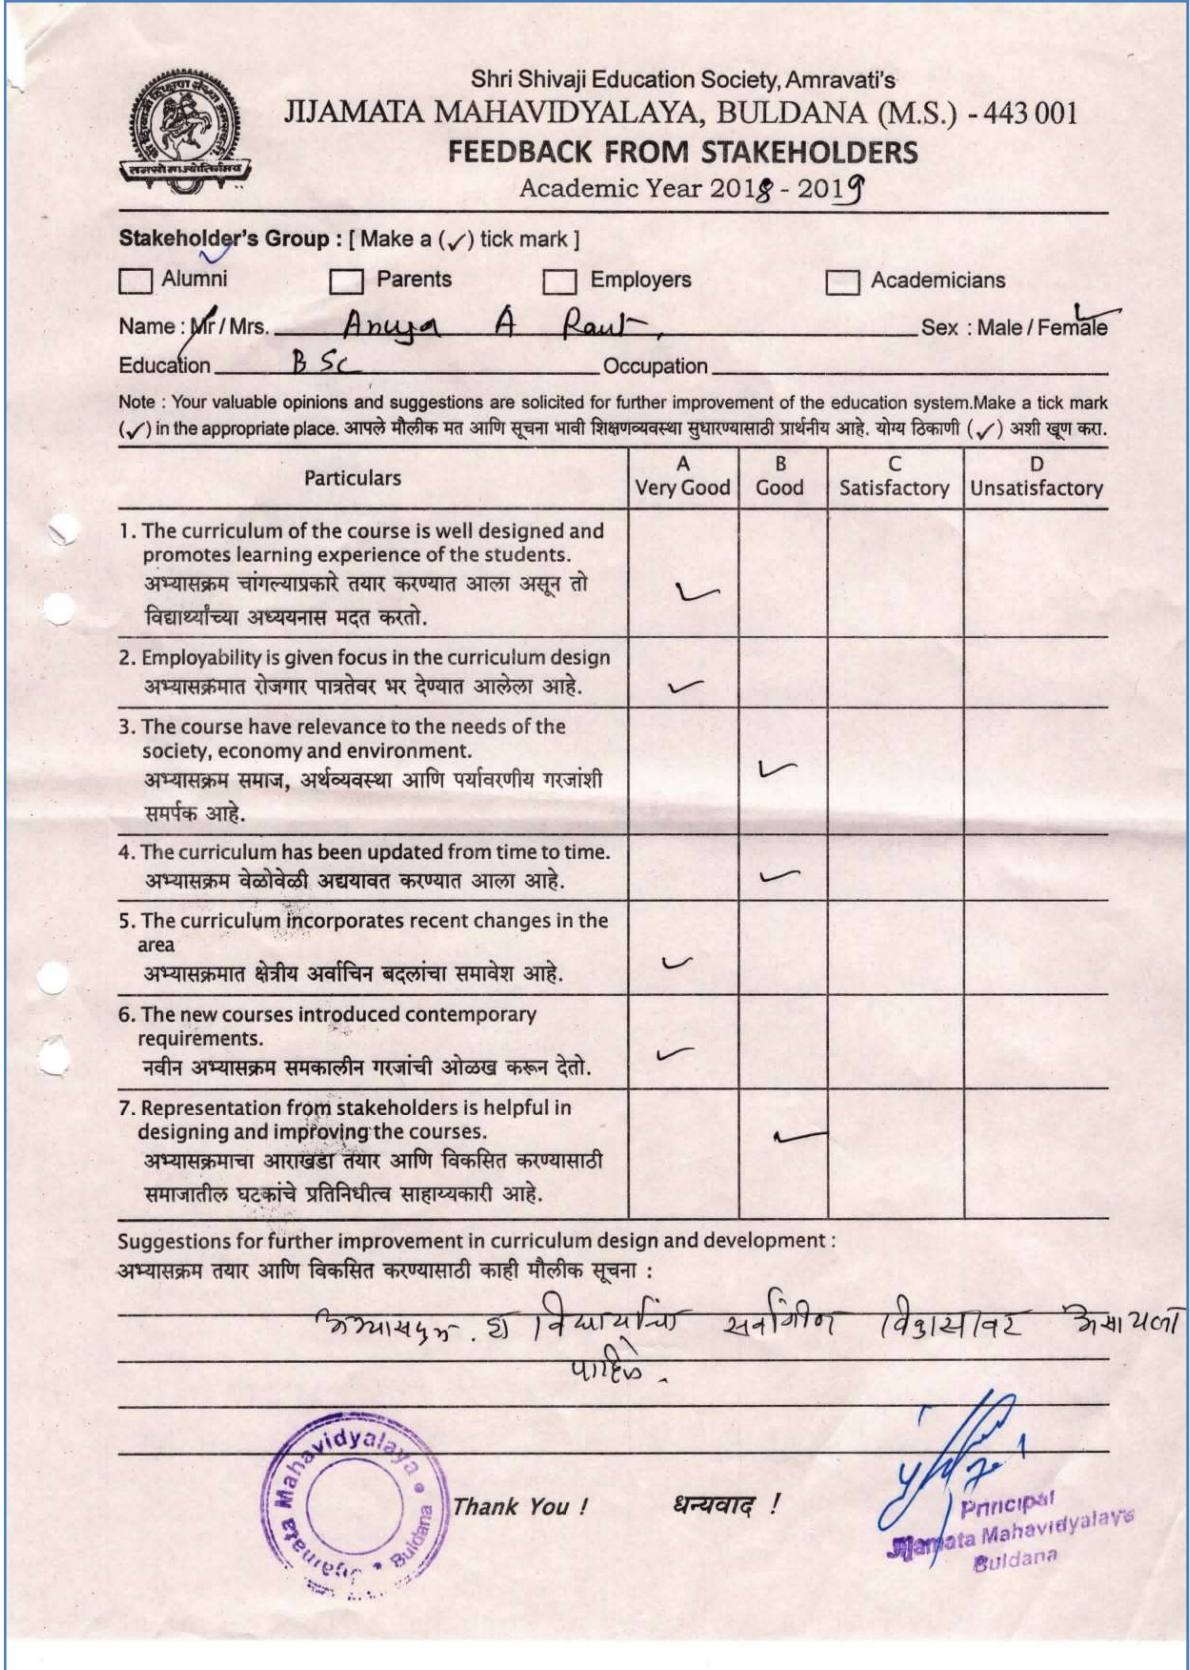 Shri Shivaji Education Society, Amravati's
JIJAMATA MAHAVIDYALAYA, BULDANA (M.S.) - 443 001
FEEDBACK FROM STAKEHOLDERS
Academic Year 2018 - 2019
Stakeholder's Group : [ Make a (✓) tick mark ]
Alumni Parents Employers Academicians
Name : Mr / Mrs. Anuja A Raut, Sex : Male / Female
Education BSc Occupation
Note : Your valuable opinions and suggestions are solicited for further improvement of the education system.Make a tick mark
(✓) in the appropriate place. आपले मौलीक मत आणि सूचना भावी शिक्षणव्यवस्था सुधारण्यासाठी प्रार्थनीय आहे. योग्य ठिकाणी (✓) अशी खूण करा.
Particulars
A
Very Good
B
Good
C
Satisfactory
D
Unsatisfactory
1. The curriculum of the course is well designed and
promotes learning experience of the students.
अभ्यासक्रम चांगल्याप्रकारे तयार करण्यात आला असून तो
✓
विद्यार्थ्यांच्या अध्ययनास मदत करतो.
2. Employability is given focus in the curriculum design
अभ्यासक्रमात रोजगार पात्रतेवर भर देण्यात आलेला आहे.
✓
3. The course have relevance to the needs of the
society, economy and environment.
✓
अभ्यासक्रम समाज, अर्थव्यवस्था आणि पर्यावरणीय गरजांशी
समर्पक आहे.
4. The curriculum has been updated from time to time.
अभ्यासक्रम वेळोवेळी अद्ययावत करण्यात आला आहे.
✓
5. The curriculum incorporates recent changes in the
area
✓
अभ्यासक्रमात क्षेत्रीय अर्वाचिन बदलांचा समावेश आहे.
6. The new courses introduced contemporary
requirements.
✓
नवीन अभ्यासक्रम समकालीन गरजांची ओळख करून देतो.
7. Representation from stakeholders is helpful in
designing and improving the courses.
✓
अभ्यासक्रमाचा आराखडा तयार आणि विकसित करण्यासाठी
समाजातील घटकांचे प्रतिनिधीत्व साहाय्यकारी आहे.
Suggestions for further improvement in curriculum design and development :
अभ्यासक्रम तयार आणि विकसित करण्यासाठी काही मौलीक सूचना :
अभ्यासक्रम हा विद्यार्थ्यांचा सर्वांगीण विकासावर असायला
पाहिजे.
Jijamata Mahavidyalaya • Buldana •
Thank You ! धन्यवाद !
Principal
Jijamata Mahavidyalaya
Buldana